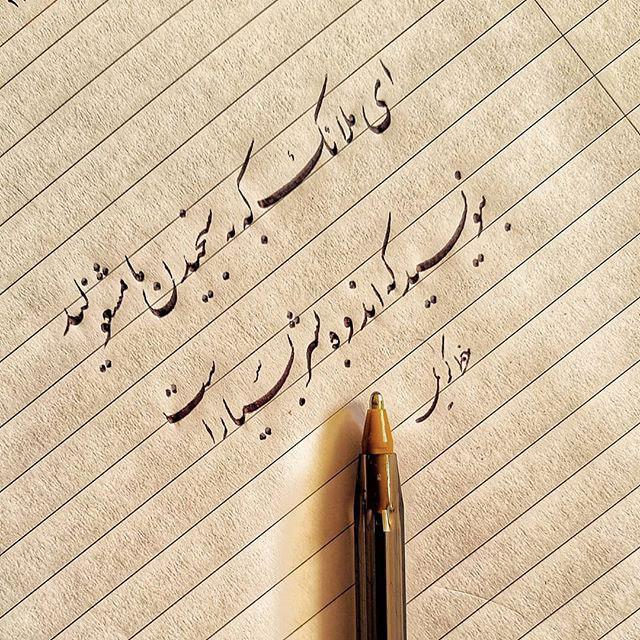 ای ملائک که به سنجیدن ما مشغولید
بنویسید که اندوه بشر بسیار است